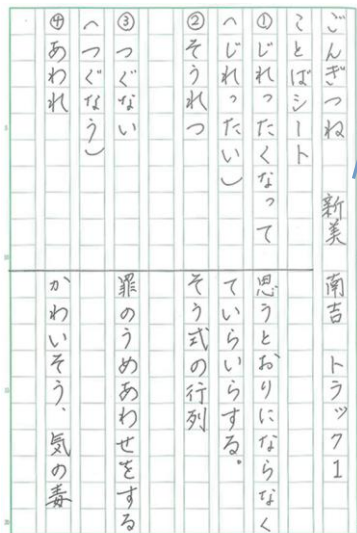 ごんぎつね　新美　南吉　トラック1
ことばシート
①じれったくなって　思うとおりにならなく
(じれったい)　ていらいらする。
②そうれつ　そう式の行列
③つぐない　罪のうめあわせをする
(つぐなう)
④あわれ　かわいそう、気の毒